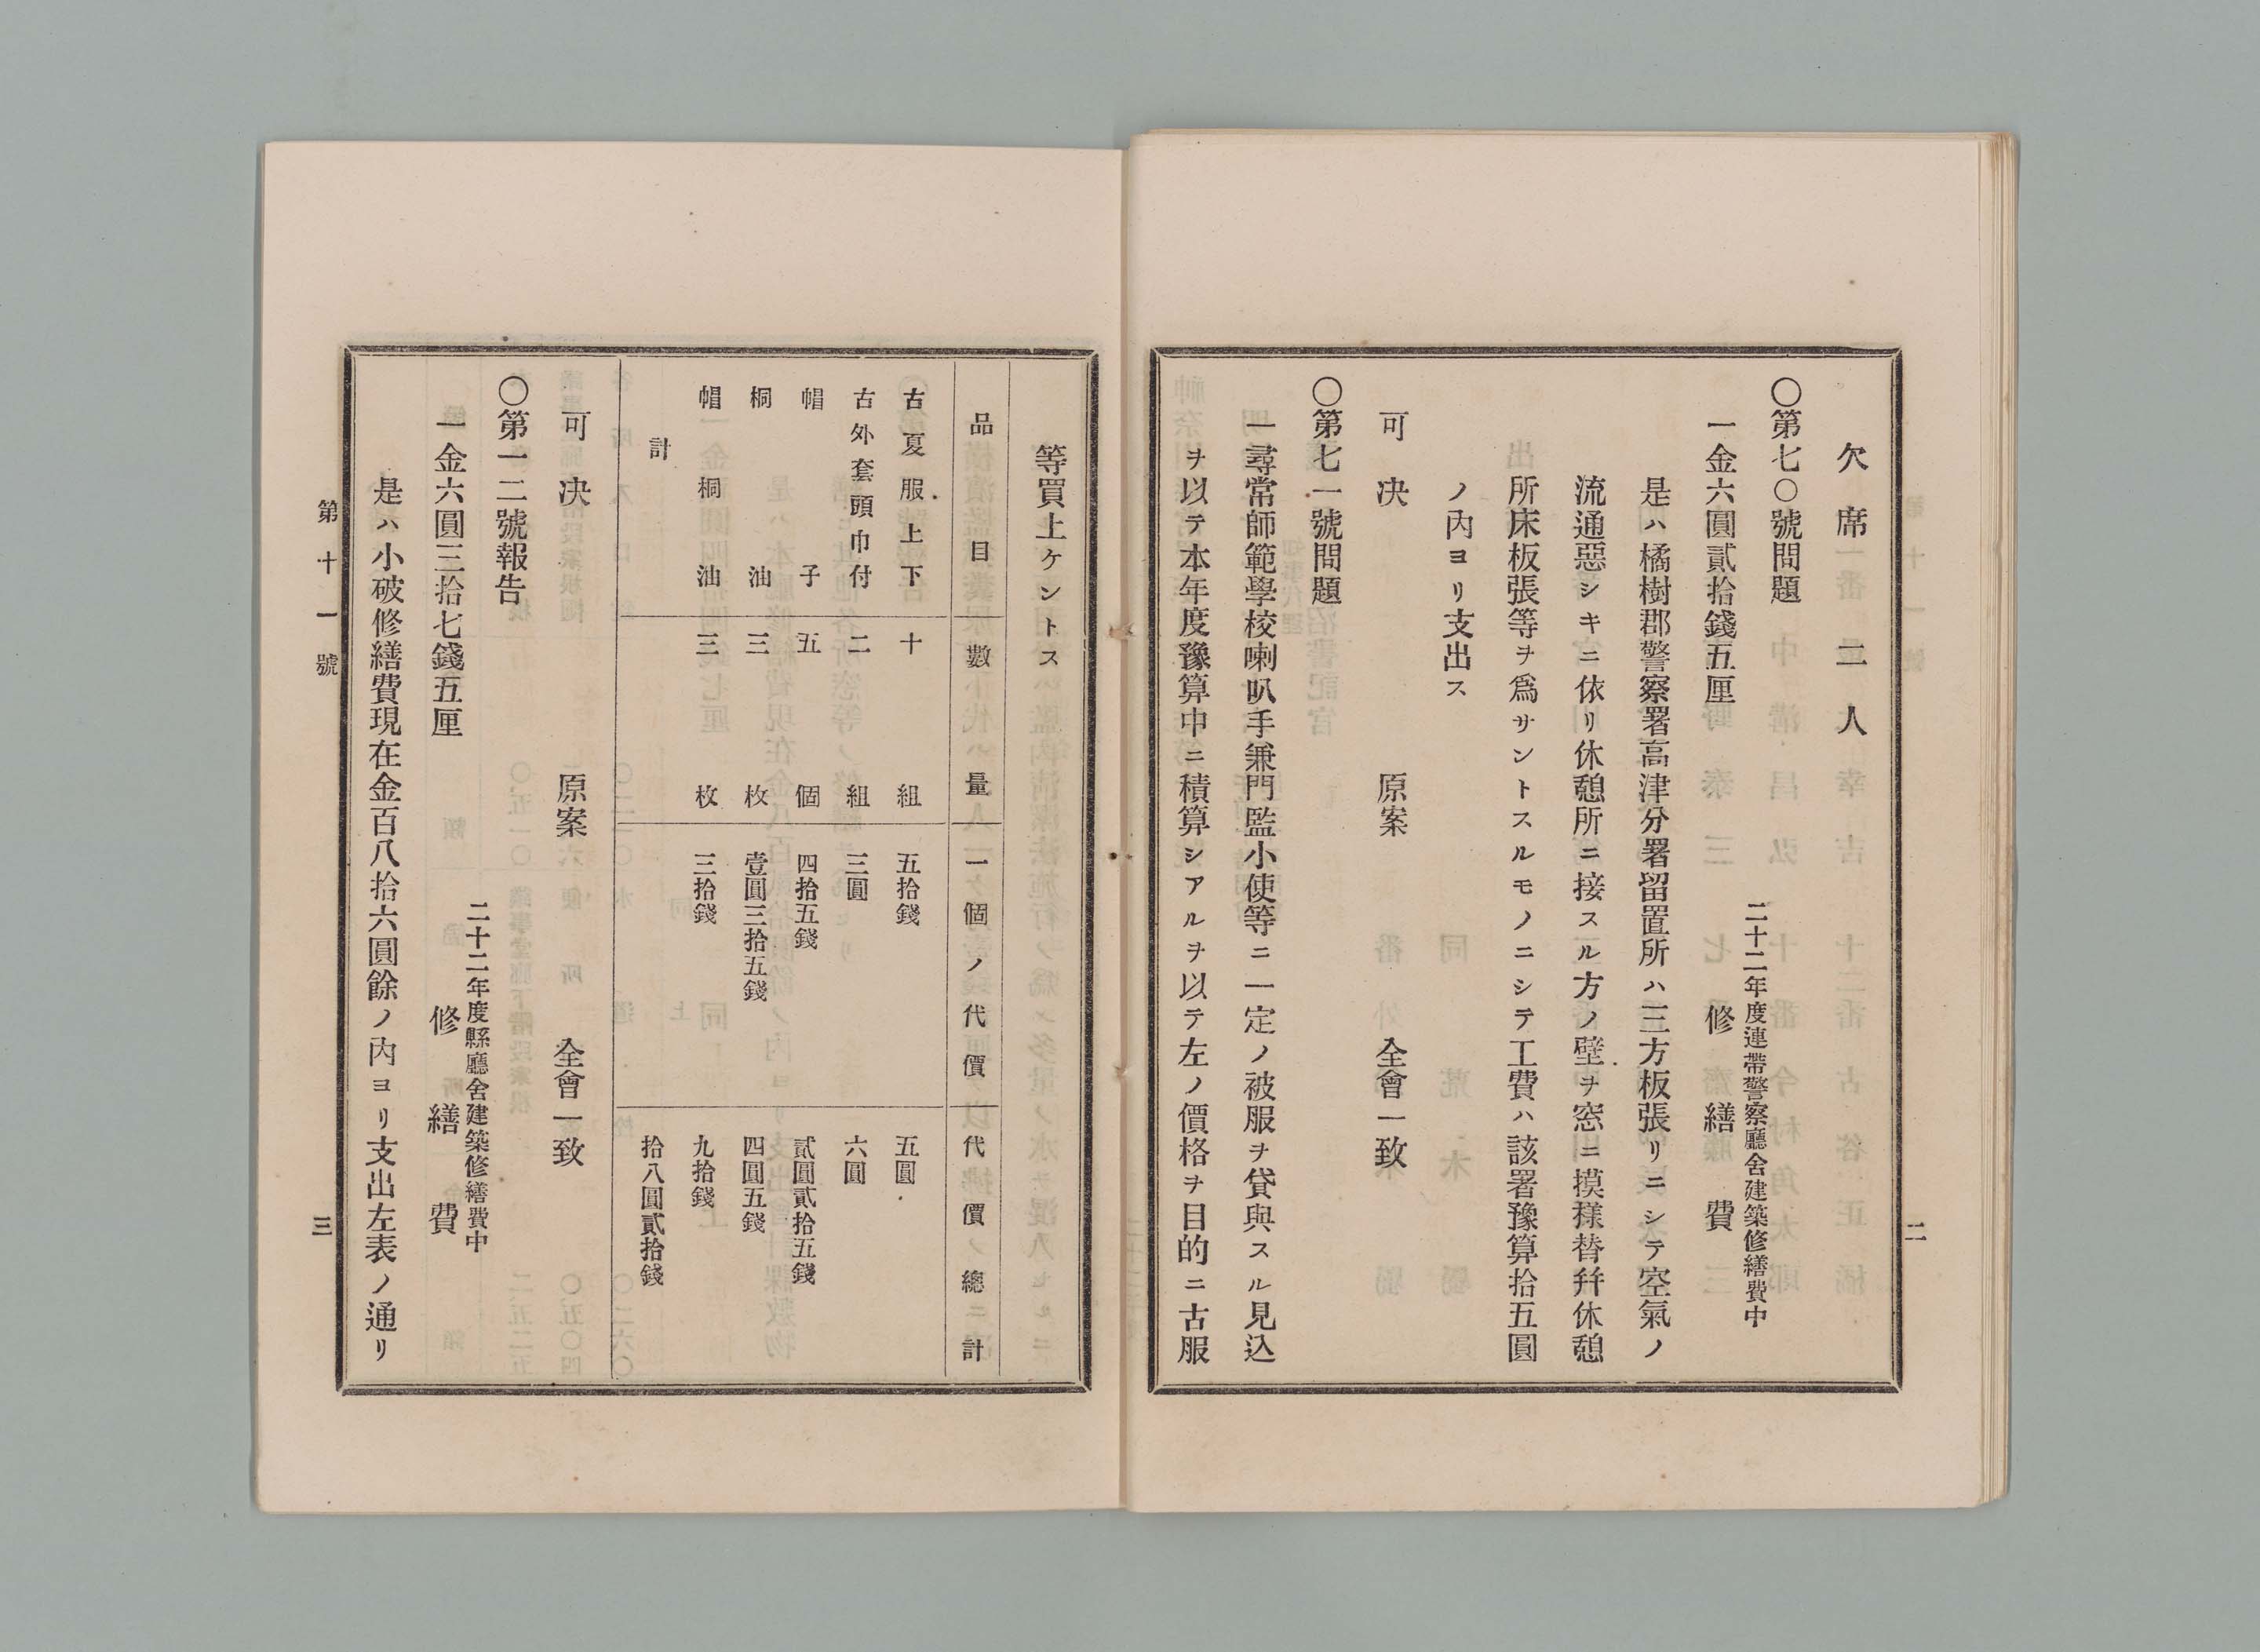 二
欠席二人
〇第七〇號問題
一金六圓貳拾錢五厘
二十二年度連帶警察廳舍建築修繕費中
修繕費
是ハ橘樹郡警察署高津分署留置所ハ三方板張リニシテ空氣ノ
流通惡シキニ依リ休憩所ニ接スル方ノ壁ヲ窓ニ摸樣替幷休憩
所床板張等ヲ爲サントスルモノニシテ工費ハ該署豫算拾五圓
ノ內ヨリ支出ス
可决 原案 全會一致
〇第七一號問題
一尋常師範學校喇叭手兼門監小使等ニ一定ノ被服ヲ貸與スル見込
ヲ以テ本年度豫算中ニ積算シアルヲ以テ左ノ價格ヲ目的ニ古服
等買上ケントス
品目 數量 一個ノ代價 代價ノ總計
古夏服上下 十組 五拾錢 五圓
古外套頭巾付 二組 三圓 六圓
帽子 五個 四拾五錢 貳圓貳拾五錢
桐油 三枚 壹圓三拾五錢 四圓五錢
帽桐油 三枚 三拾錢 九拾錢
計 拾八圓貳拾錢
可决 原案 全會一致
〇第一二號報告
一金六圓三拾七錢五厘
二十二年度縣廳舍建築修繕費中
修繕費
是ハ小破修繕費現在金百八拾六圓餘ノ內ヨリ支出左表ノ通リ
第十一號
三